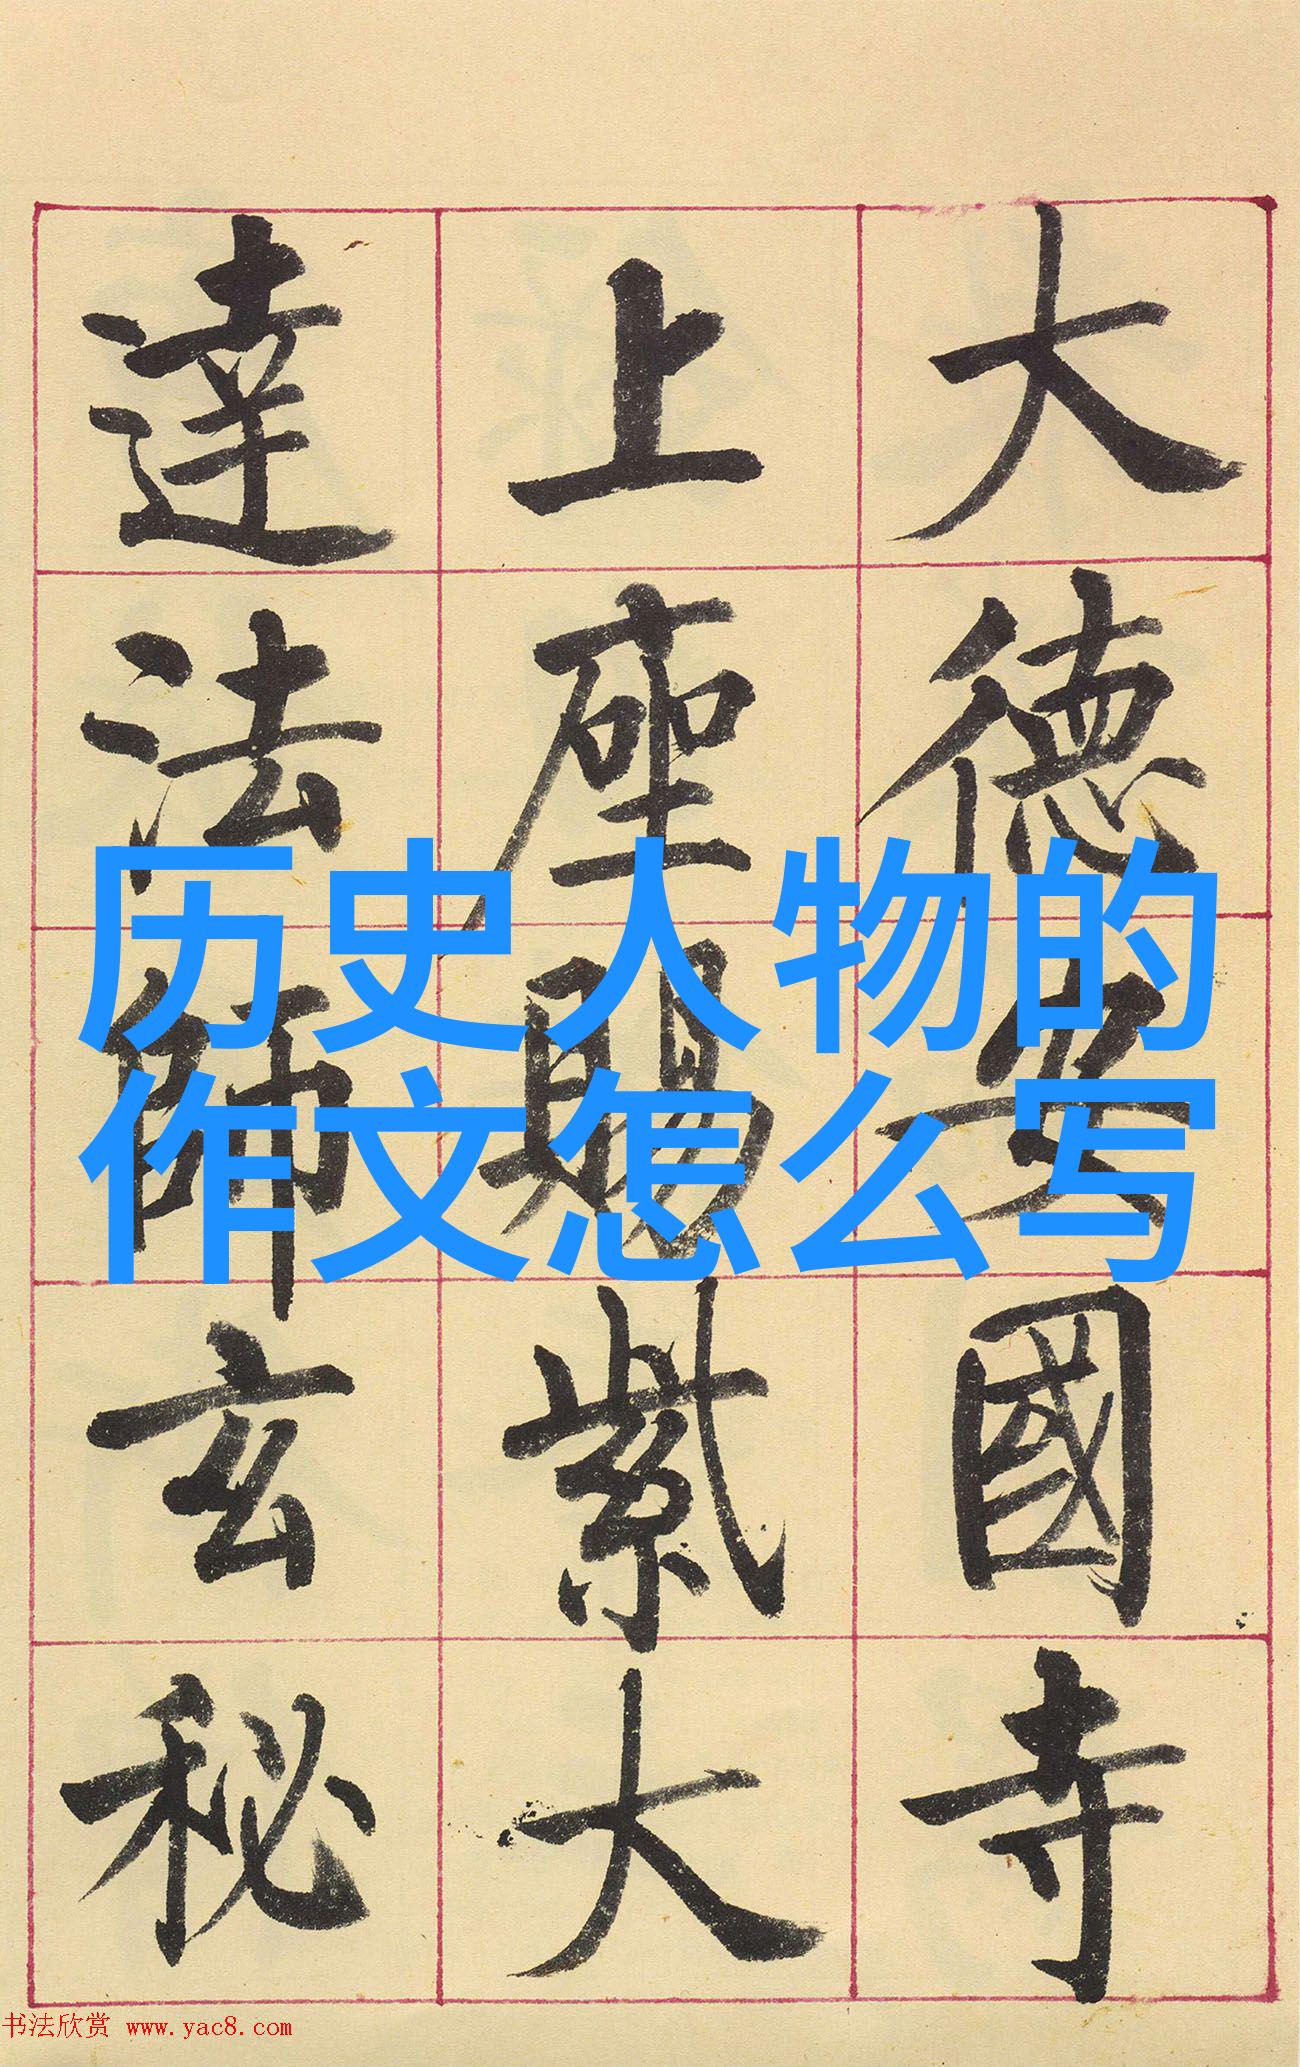 大德安國寺
上座賜紫大
達法師玄秘
历史人物的
作文怎么写
书法欣赏 www.yac8.com